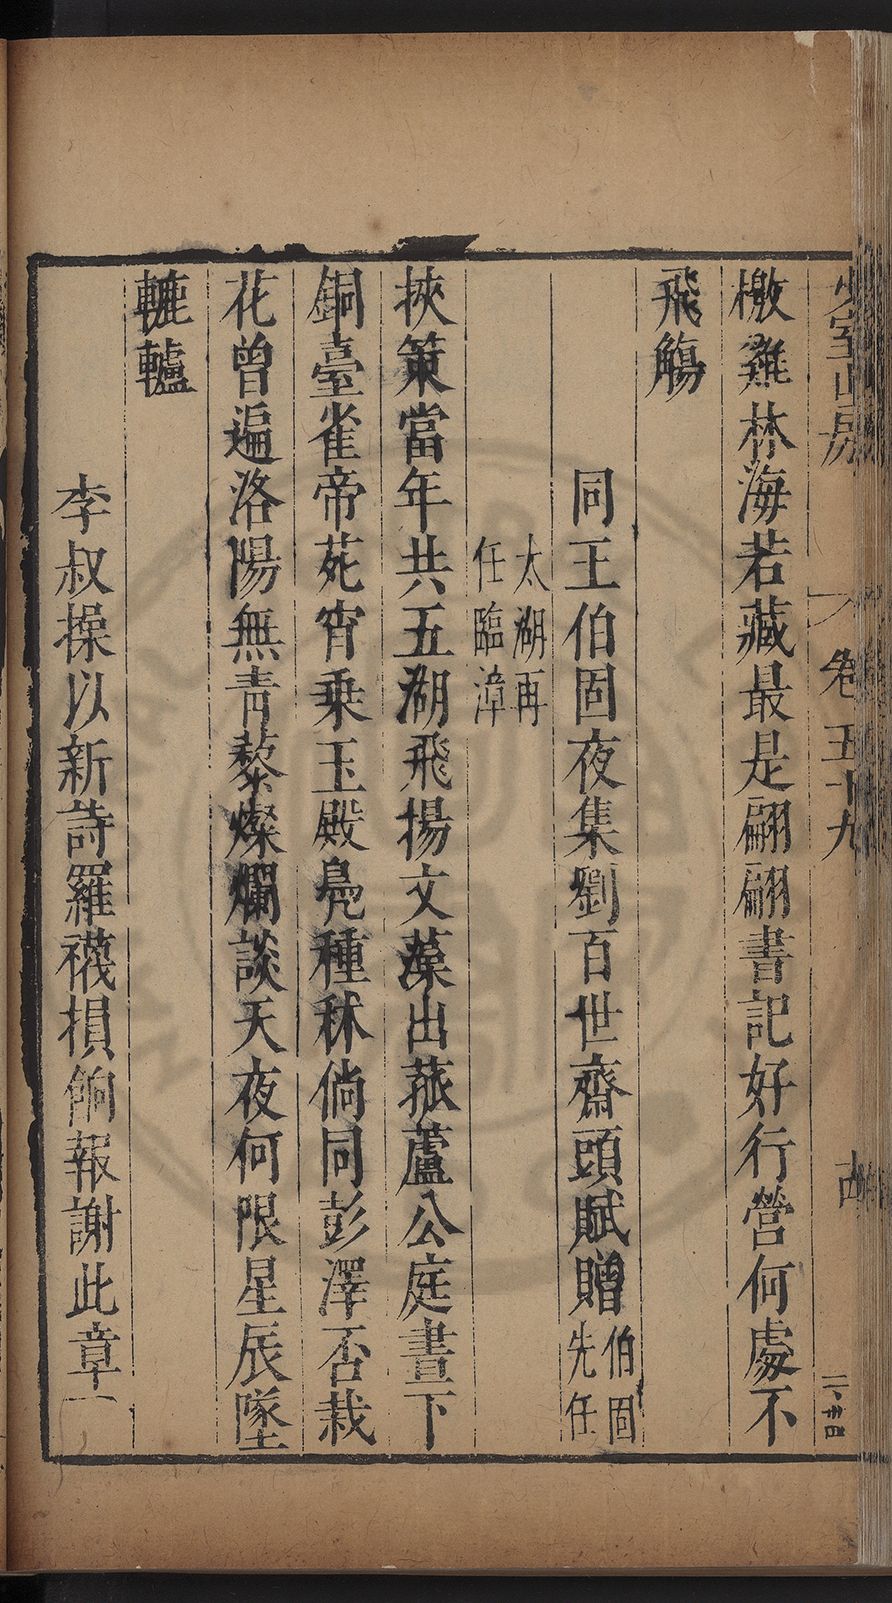 少室山房　卷五十九
檄雞林海若藏最是翩翩書記好行營何處不
飛觴
同王伯固夜集劉百世齋頭賦贈伯固先任
太湖再任臨漳
挾策當年共五湖飛揚文藻出菰蘆公庭晝下
銅臺雀帝苑宵乘玉殿鳧種秫倘同彭澤否栽
花曾遍洛陽無青藜燦爛談天夜何限星辰墜
轆轤
李叔操以新詩羅襪損餉報謝此章